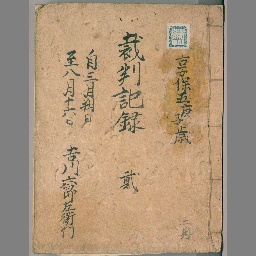 享保五庚子歳
裁判記録 貳
自三月朔日
至八月十六日
吉川六郎左衛門